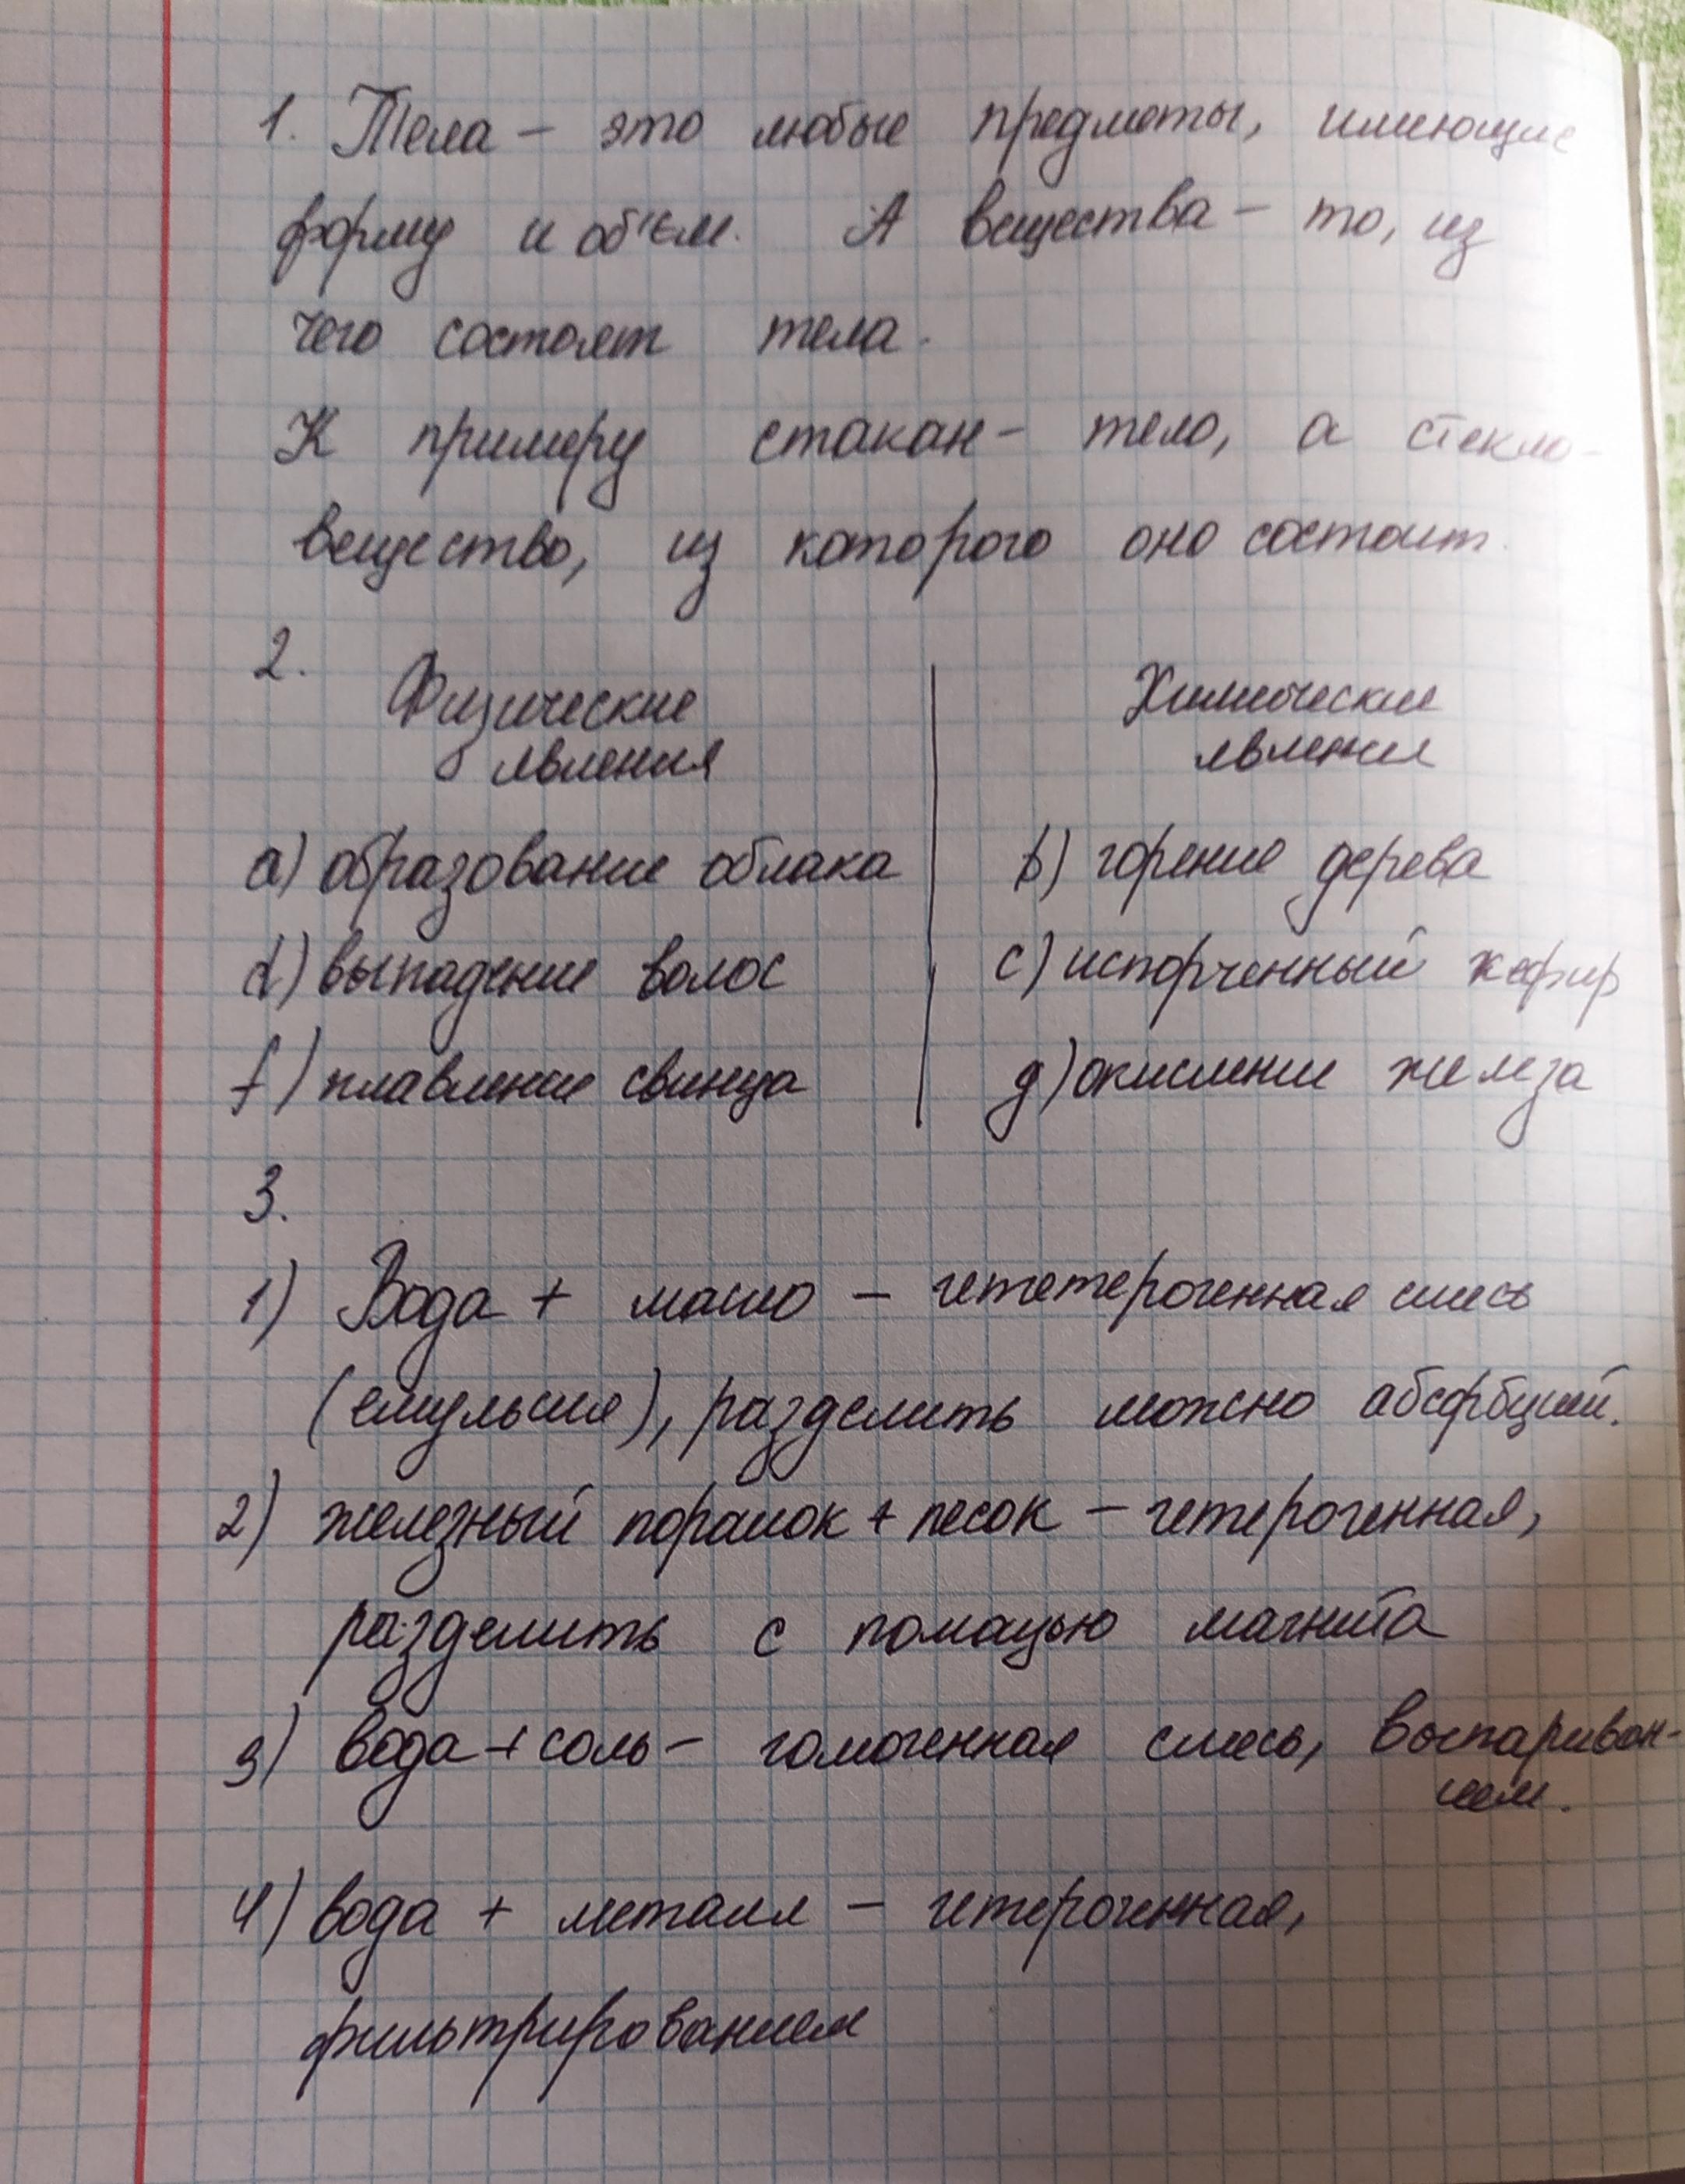 1. Тела – это любые предметы, имеющие
форму и об'ём. А вещества – то, из
чего состоят тела.
К примеру стакан – тело, а стекло –
вещество, из которого оно состоит.
2.
Физические явления
Химические явления
a) образование облака
b) горение дерева
d) выпадение волос
c) испорченный кефир
f) плавление свинца
g) окисление железа
3.
1) Вода + масло – гететерогенная смесь
(емульсия), разделить можно абсорбцией.
2) железный порашок + песок – гетерогенная,
разделить с помощью магнита
3) вода + соль – гомогенная смесь, выпариван-
ием.
4) вода + металл – гетерогенная,
фильтрированием